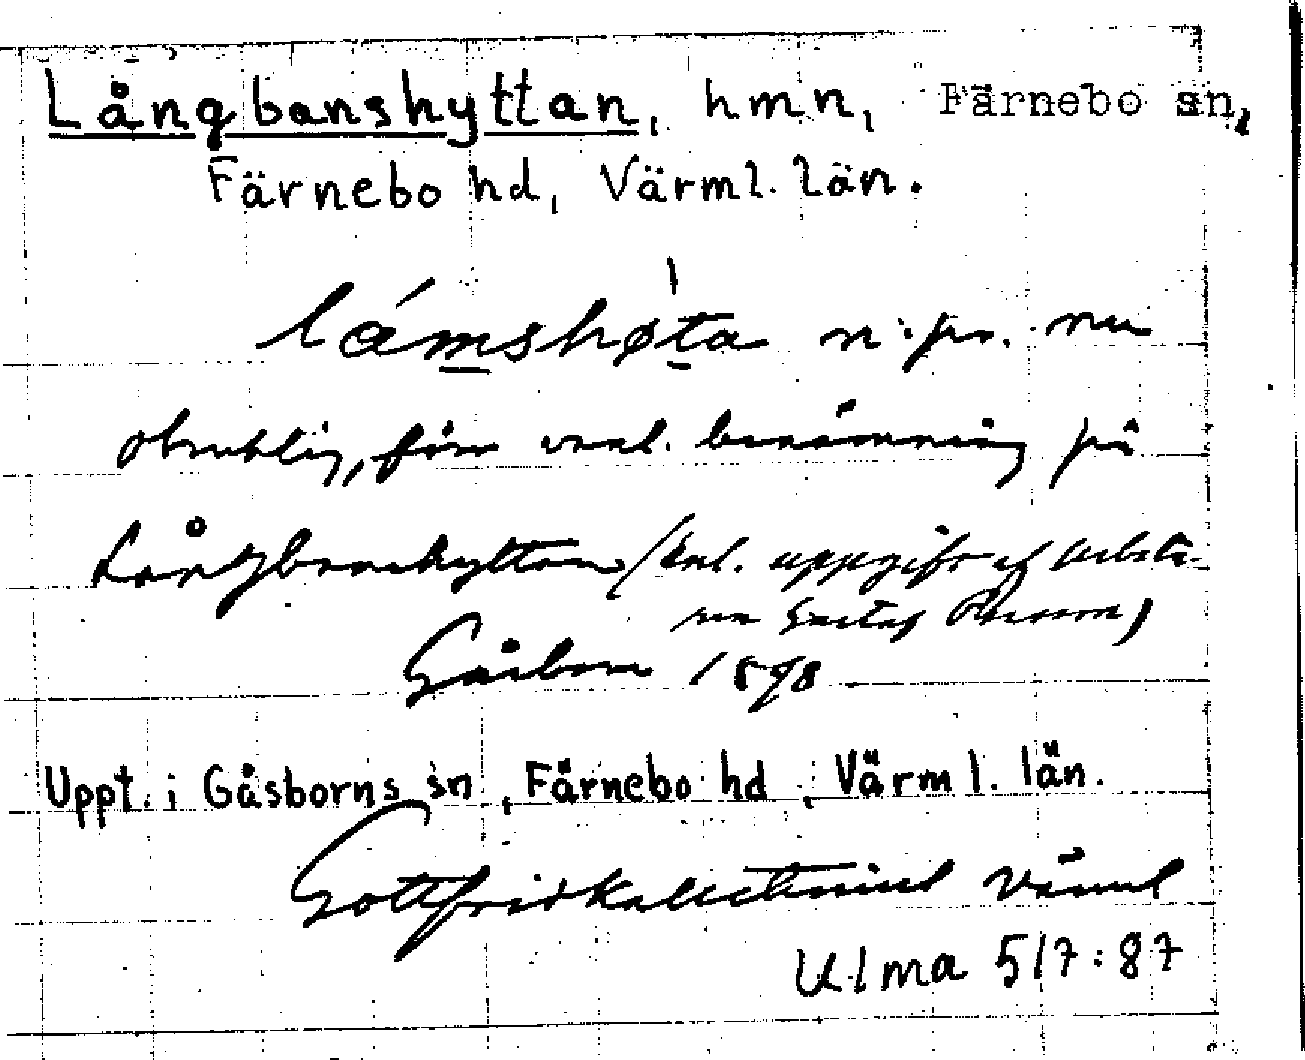 Långbanshyttan, hmn, Färnebo sn,
Färnebo hd, Värml. län.
lámshø̀ta n. pr. nu
obruklig, förr vanl. benämning på
Långbanshyttan (enl. uppgift af Arbeta-
ren Gustaf Persson)
Gåsborn 1898
Uppt. i Gåsborns sn, Färnebo hd, Värml. län.
Gottfrid Kallstenius Värml
Ulma 517:87